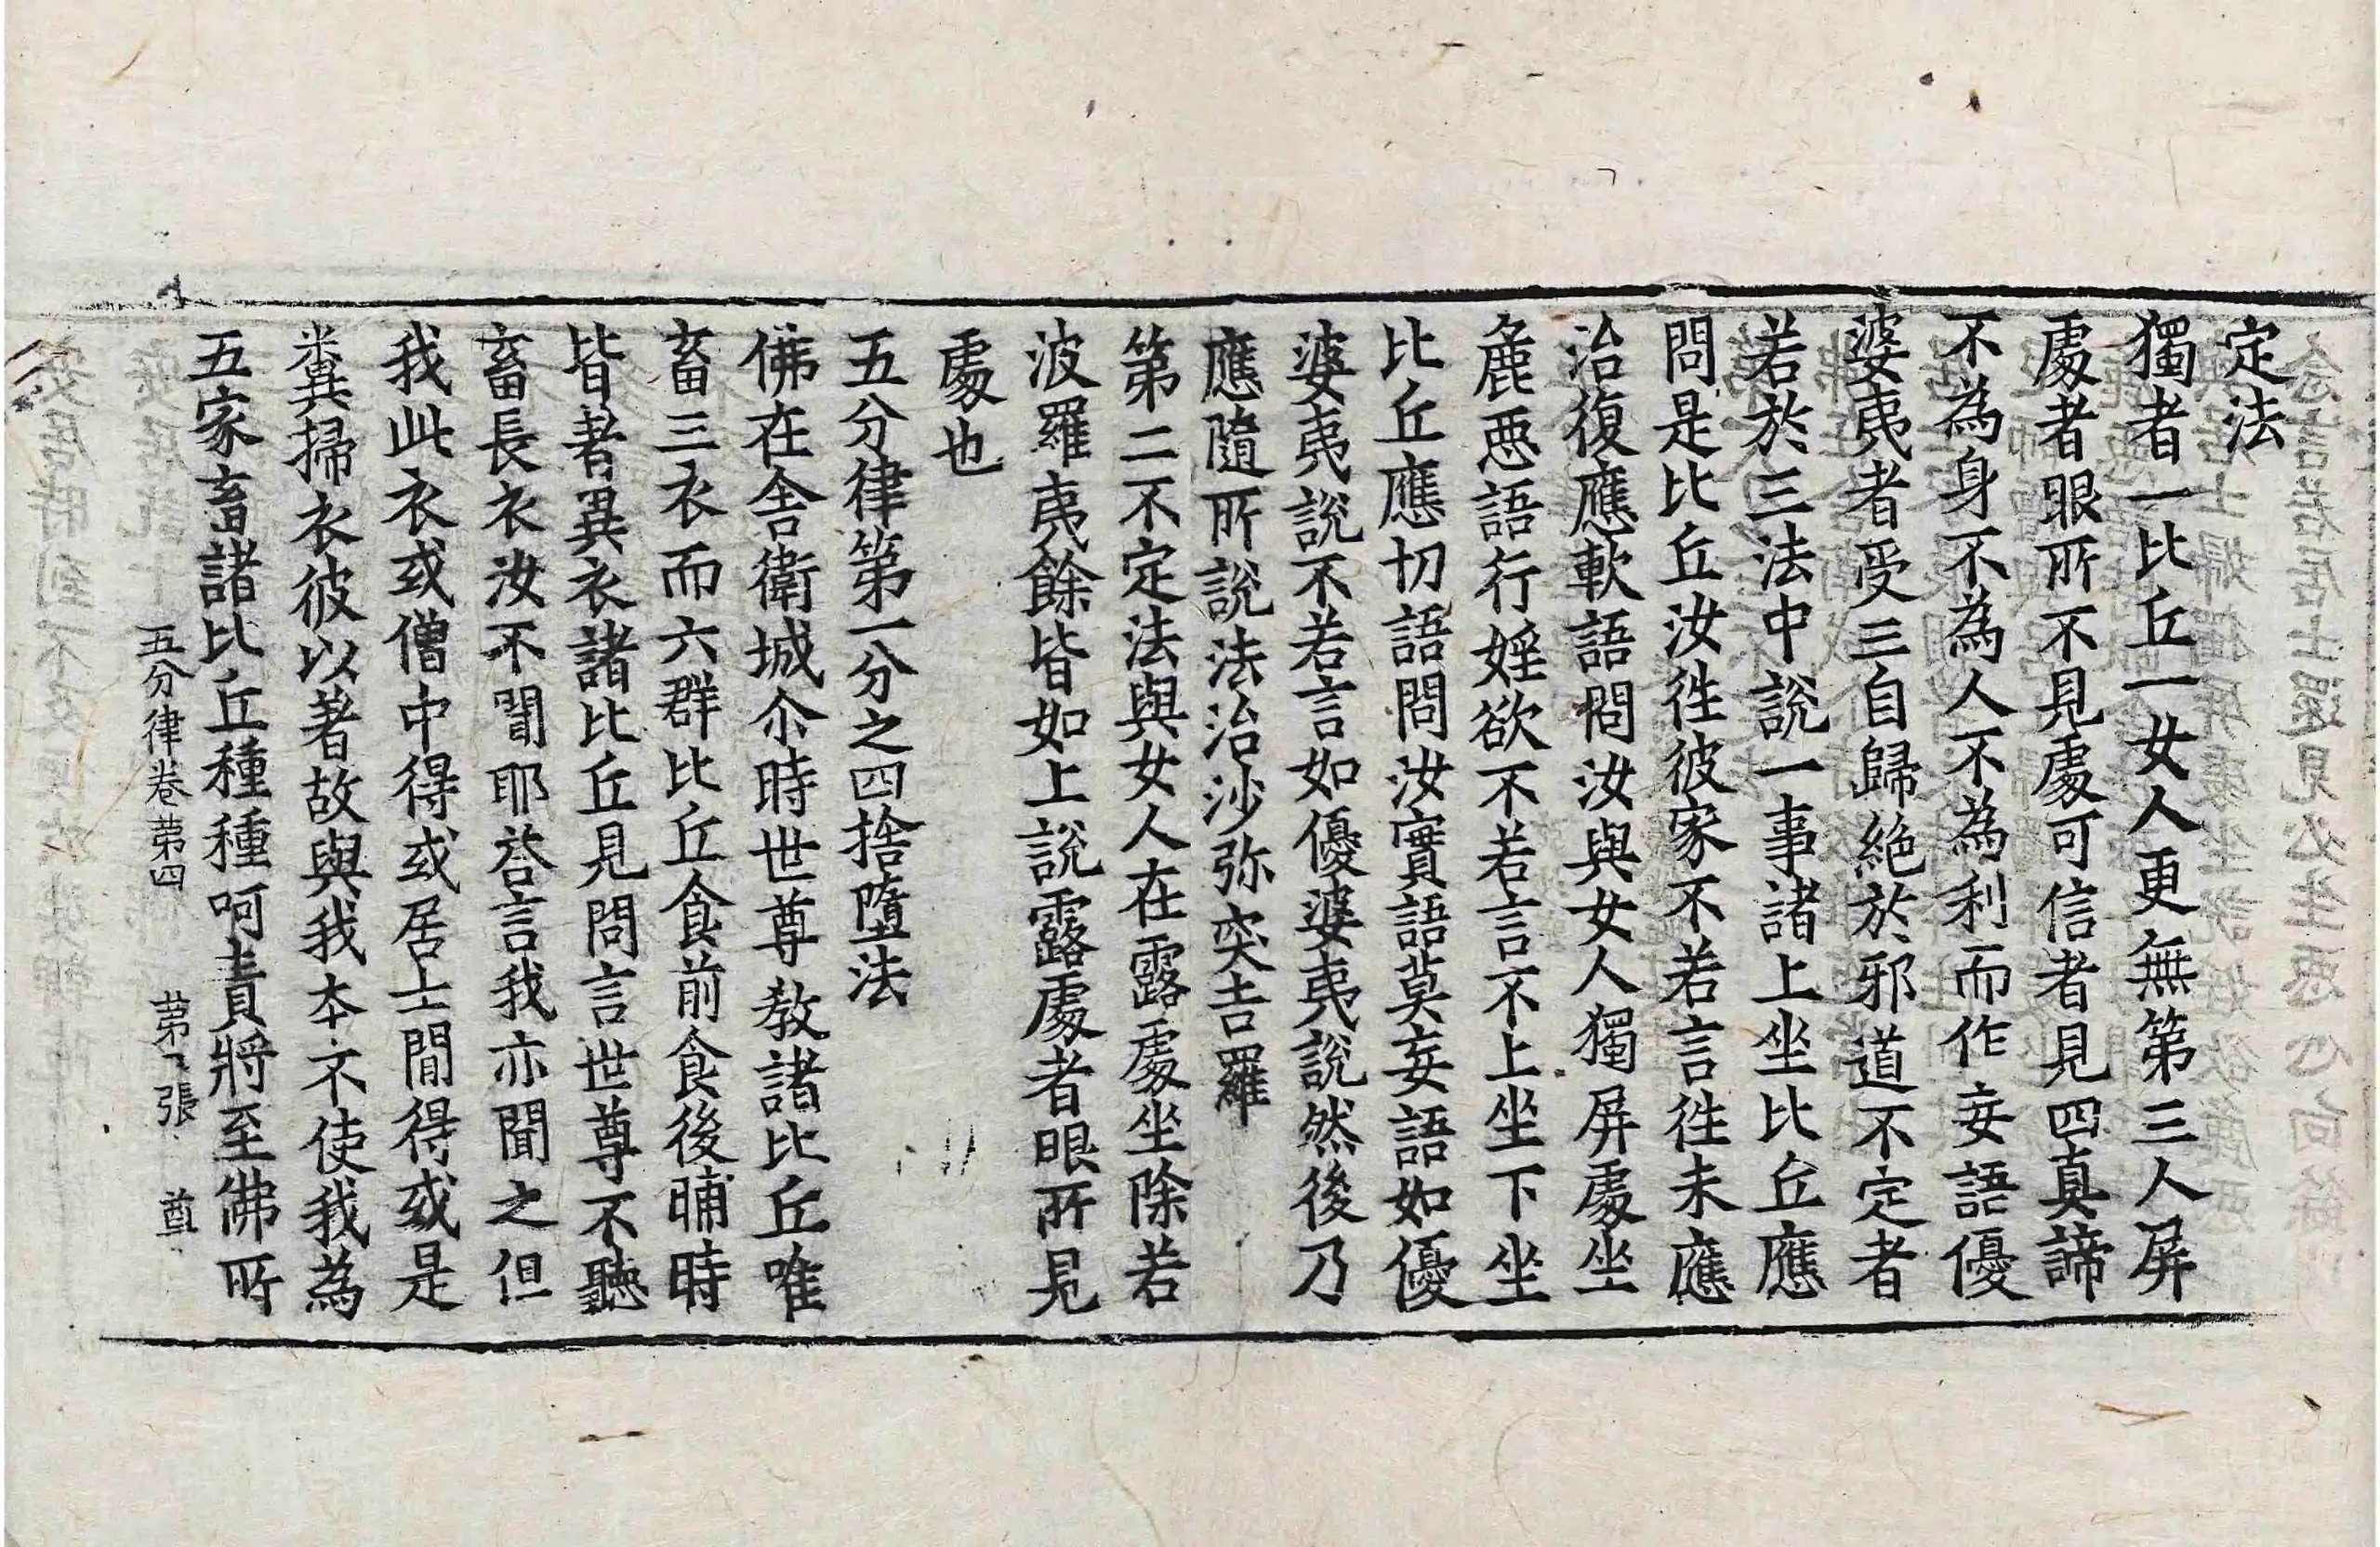 定法
獨者一比丘一女人更無第三人屏
處者眼所不見處可信者見四真諦
不為身不為人不為利而作妄語優
婆夷者受三自歸絶於邪道不定者
若於三法中說一事諸上坐比丘應
問是比丘汝徃彼家不若言徃未應
治復應軟語問汝與女人獨屏處坐
麁惡語行婬欲不若言不上坐下坐
比丘應切語問汝實語莫妄語如優
婆夷說不若言如優婆夷說然後乃
應隨所說法治沙弥突吉羅
第二不定法與女人在露處坐除若
波羅夷餘皆如上說露處者眼所見
處也
五分律第一分之四捨墮法
佛在舎衛城尒時世尊教諸比丘唯
畜三衣而六群比丘食前食後晡時
皆著異衣諸比丘見問言世尊不聽
畜長衣汝不聞耶荅言我亦聞之但
我此衣或僧中得或居士閒得或是
糞掃衣彼以著故與我本不使我為
五家畜諸比丘種種呵責將至佛所
五分律卷苐四 苐 張 酋